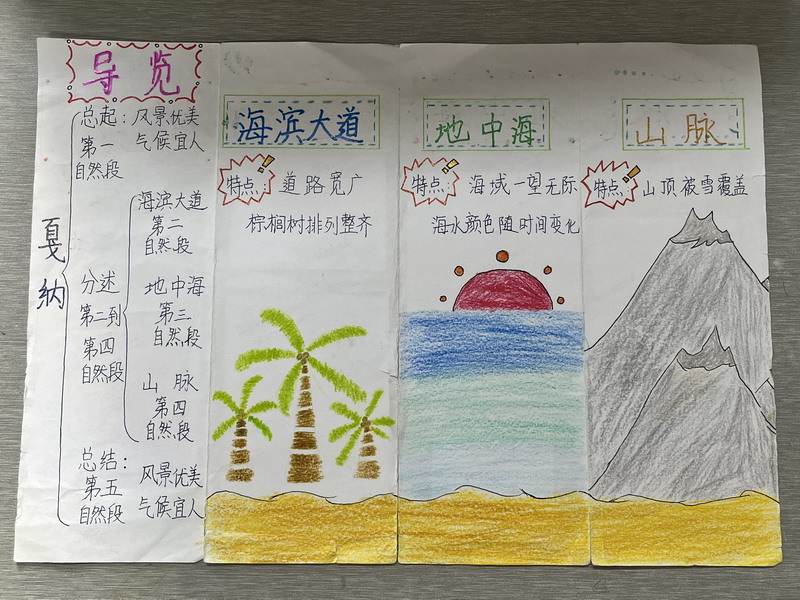 导览
总起：风景优美
第一 气候宜人
自然段
戛纳
海滨大道
第二
自然段
分述
第二到
第四
自然段
地中海
第三
自然段
山脉
第四
自然段
总结：
第五
自然段
风景优美
气候宜人
海滨大道
特点：道路宽广
棕榈树排列整齐
地中海
特点：海域一望无际
海水颜色随时间变化
山脉
特点：山顶被雪覆盖